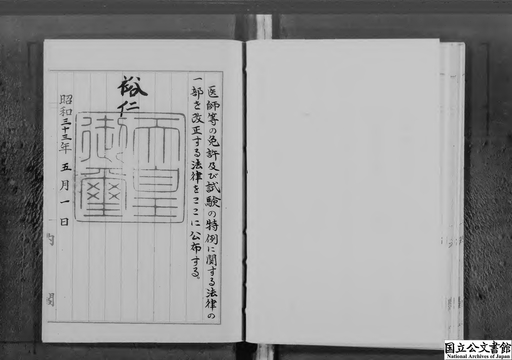 医師等の免許及び試験の特例に関する法律の
一部を改正する法律をここに公布する。
裕仁
天皇
御璽
昭和三十三年五月一日
内閣
国立公文書館
National Archives of Japan